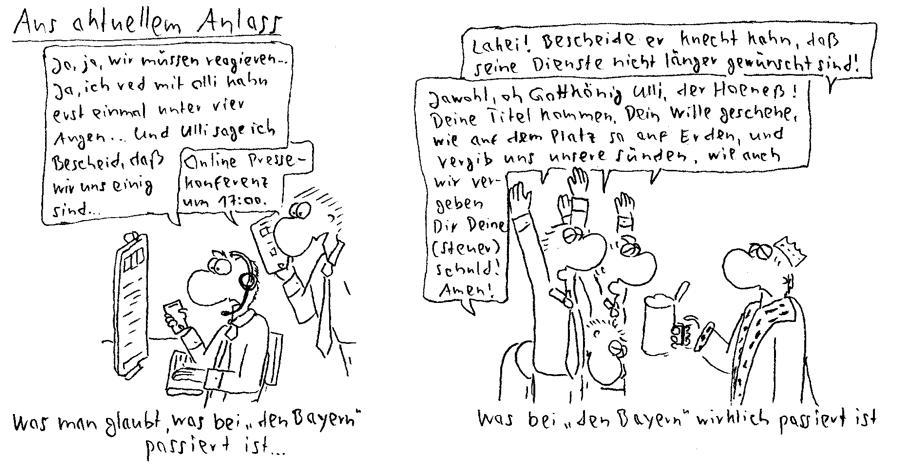 Aus aktuellem Anlass
Ja, ja, wir müssen reagieren...
Ja, ich red mit Olli Kahn
erst einmal unter vier
Augen... Und Ulli sage ich
Bescheid, daß
wir uns einig
sind...
Online Presse-
konferenz
um 17:00.
Was man glaubt, was bei „den Bayern“
passiert ist...
Lakei! Bescheide er Knecht Kahn, daß
seine Dienste nicht länger gewünscht sind!
Jawohl, oh Gottkönig Ulli, der Hoeneß!
Deine Titel kommen, Dein Wille geschehe,
wie auf dem Platz so auf Erden, und
vergib uns unsere Sünden, wie auch
wir ver-
geben
Dir Deine
(Steuer)
schuld!
Amen!
Was bei „den Bayern“ wirklich passiert ist